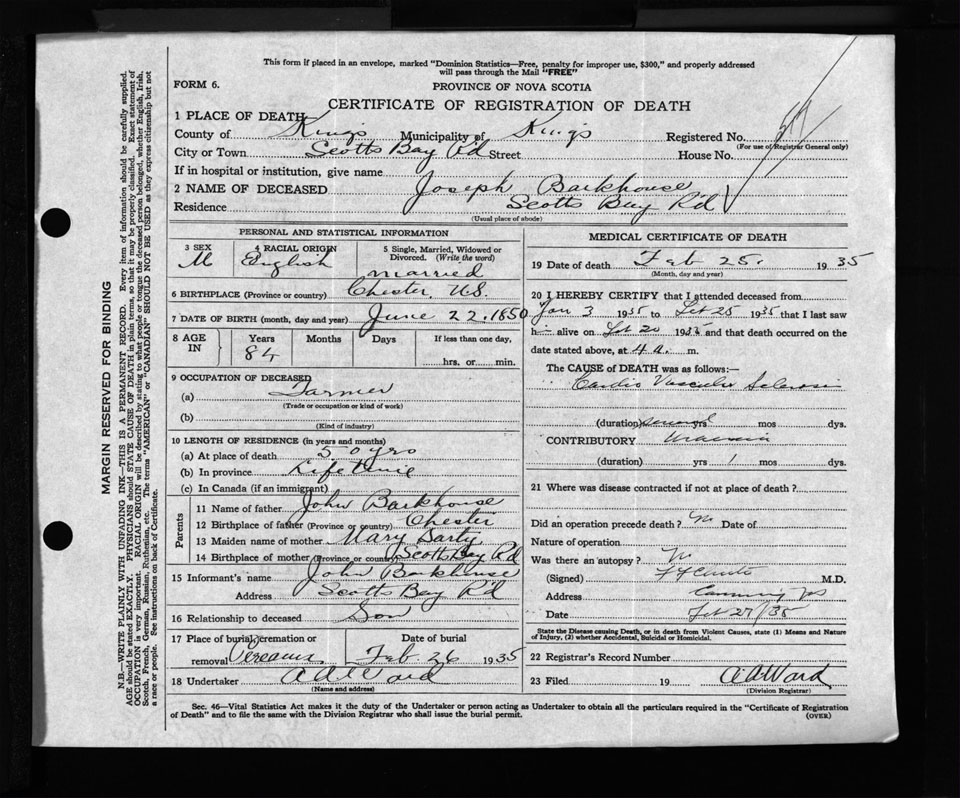 This form if placed in an envelope, marked "Dominion Statistics—Free, penalty for improper use, $300," and properly addressed
will pass through the Mail "FREE"
FORM 6.
PROVINCE OF NOVA SCOTIA
CERTIFICATE OF REGISTRATION OF DEATH
1 PLACE OF DEATH
County of Kings Municipality of Kings Registered No.
(For use of Registrar General only)
City or Town Scotts Bay Rd Street House No.
If in hospital or institution, give name
2 NAME OF DECEASED Joseph Barkhouse
Residence Scotts Bay Rd
(Usual place of abode)
PERSONAL AND STATISTICAL INFORMATION
3 SEX M
4 RACIAL ORIGIN English
5 Single, Married, Widowed or
Divorced. (Write the word)
married
6 BIRTHPLACE (Province or country) Chester, N.S.
7 DATE OF BIRTH (month, day and year) June 22, 1850
8 AGE IN Years 84 Months Days If less than one day,
hrs. or min.
9 OCCUPATION OF DECEASED
(a) Farmer
(Trade or occupation or kind of work)
(b)
(Kind of industry)
10 LENGTH OF RESIDENCE (in years and months)
(a) At place of death 50 yrs
(b) In province Life time
(c) In Canada (if an immigrant)
Parents
11 Name of father John Barkhouse
12 Birthplace of father (Province or country) Chester
13 Maiden name of mother Mary
14 Birthplace of mother (Province or country) Scotts Bay Rd
15 Informant's name John Barkhouse
Address Scotts Bay Rd
16 Relationship to deceased Son
17 Place of burial, cremation or
removal
Date of burial
Feb 26 1935
18 Undertaker A D Ward
(Name and address)
MEDICAL CERTIFICATE OF DEATH
19 Date of death Feb 25, 1935
(Month, day and year)
20 I HEREBY CERTIFY that I attended deceased from
Jan 3 1935 to Feb 25 1935 that I last saw
h alive on Feb 20 193 and that death occurred on
date stated above, at 4 a. m.
The CAUSE of DEATH was as follows:—
Cardio Vascular Sclerosis
(duration) several yrs mos dys.
CONTRIBUTORY Uraemia
(duration) yrs 1 mos dys.
21 Where was disease contracted if not at place of death?
Did an operation precede death? No Date of
Nature of operation
Was there an autopsy? No
(Signed) M.D.
Address Canning NS
Date Feb 27/35
State the Disease causing Death, or in death from Violent Causes, state (1) Means and Nature
of Injury, (2) whether Accidental, Suicidal or Homicidal.
22 Registrar's Record Number
23 Filed 19 A D Ward
(Division Registrar)
Sec. 46—Vital Statistics Act makes it the duty of the Undertaker or person acting as Undertaker to obtain all the particulars required in the "Certificate of Registration
of Death" and to file the same with the Division Registrar who shall issue the burial permit.
(OVER)
MARGIN RESERVED FOR BINDING
N.B.—WRITE PLAINLY WITH UNFADING INK—THIS IS A PERMANENT RECORD. Every item of information should be carefully supplied.
AGE should be stated EXACTLY. PHYSICIANS should STATE CAUSE OF DEATH in plain terms, so that it may be properly classified. Exact statement of
OCCUPATION is very important. RACIAL ORIGIN will be described by stating to what people or tongue the deceased person belonged, whether English, Irish,
Scotch, French, German, Russian, Ruthenian, etc. The terms "AMERICAN" or "CANADIAN" SHOULD NOT BE USED as they express citizenship but not
a race or people. See instructions on back of Certificate.